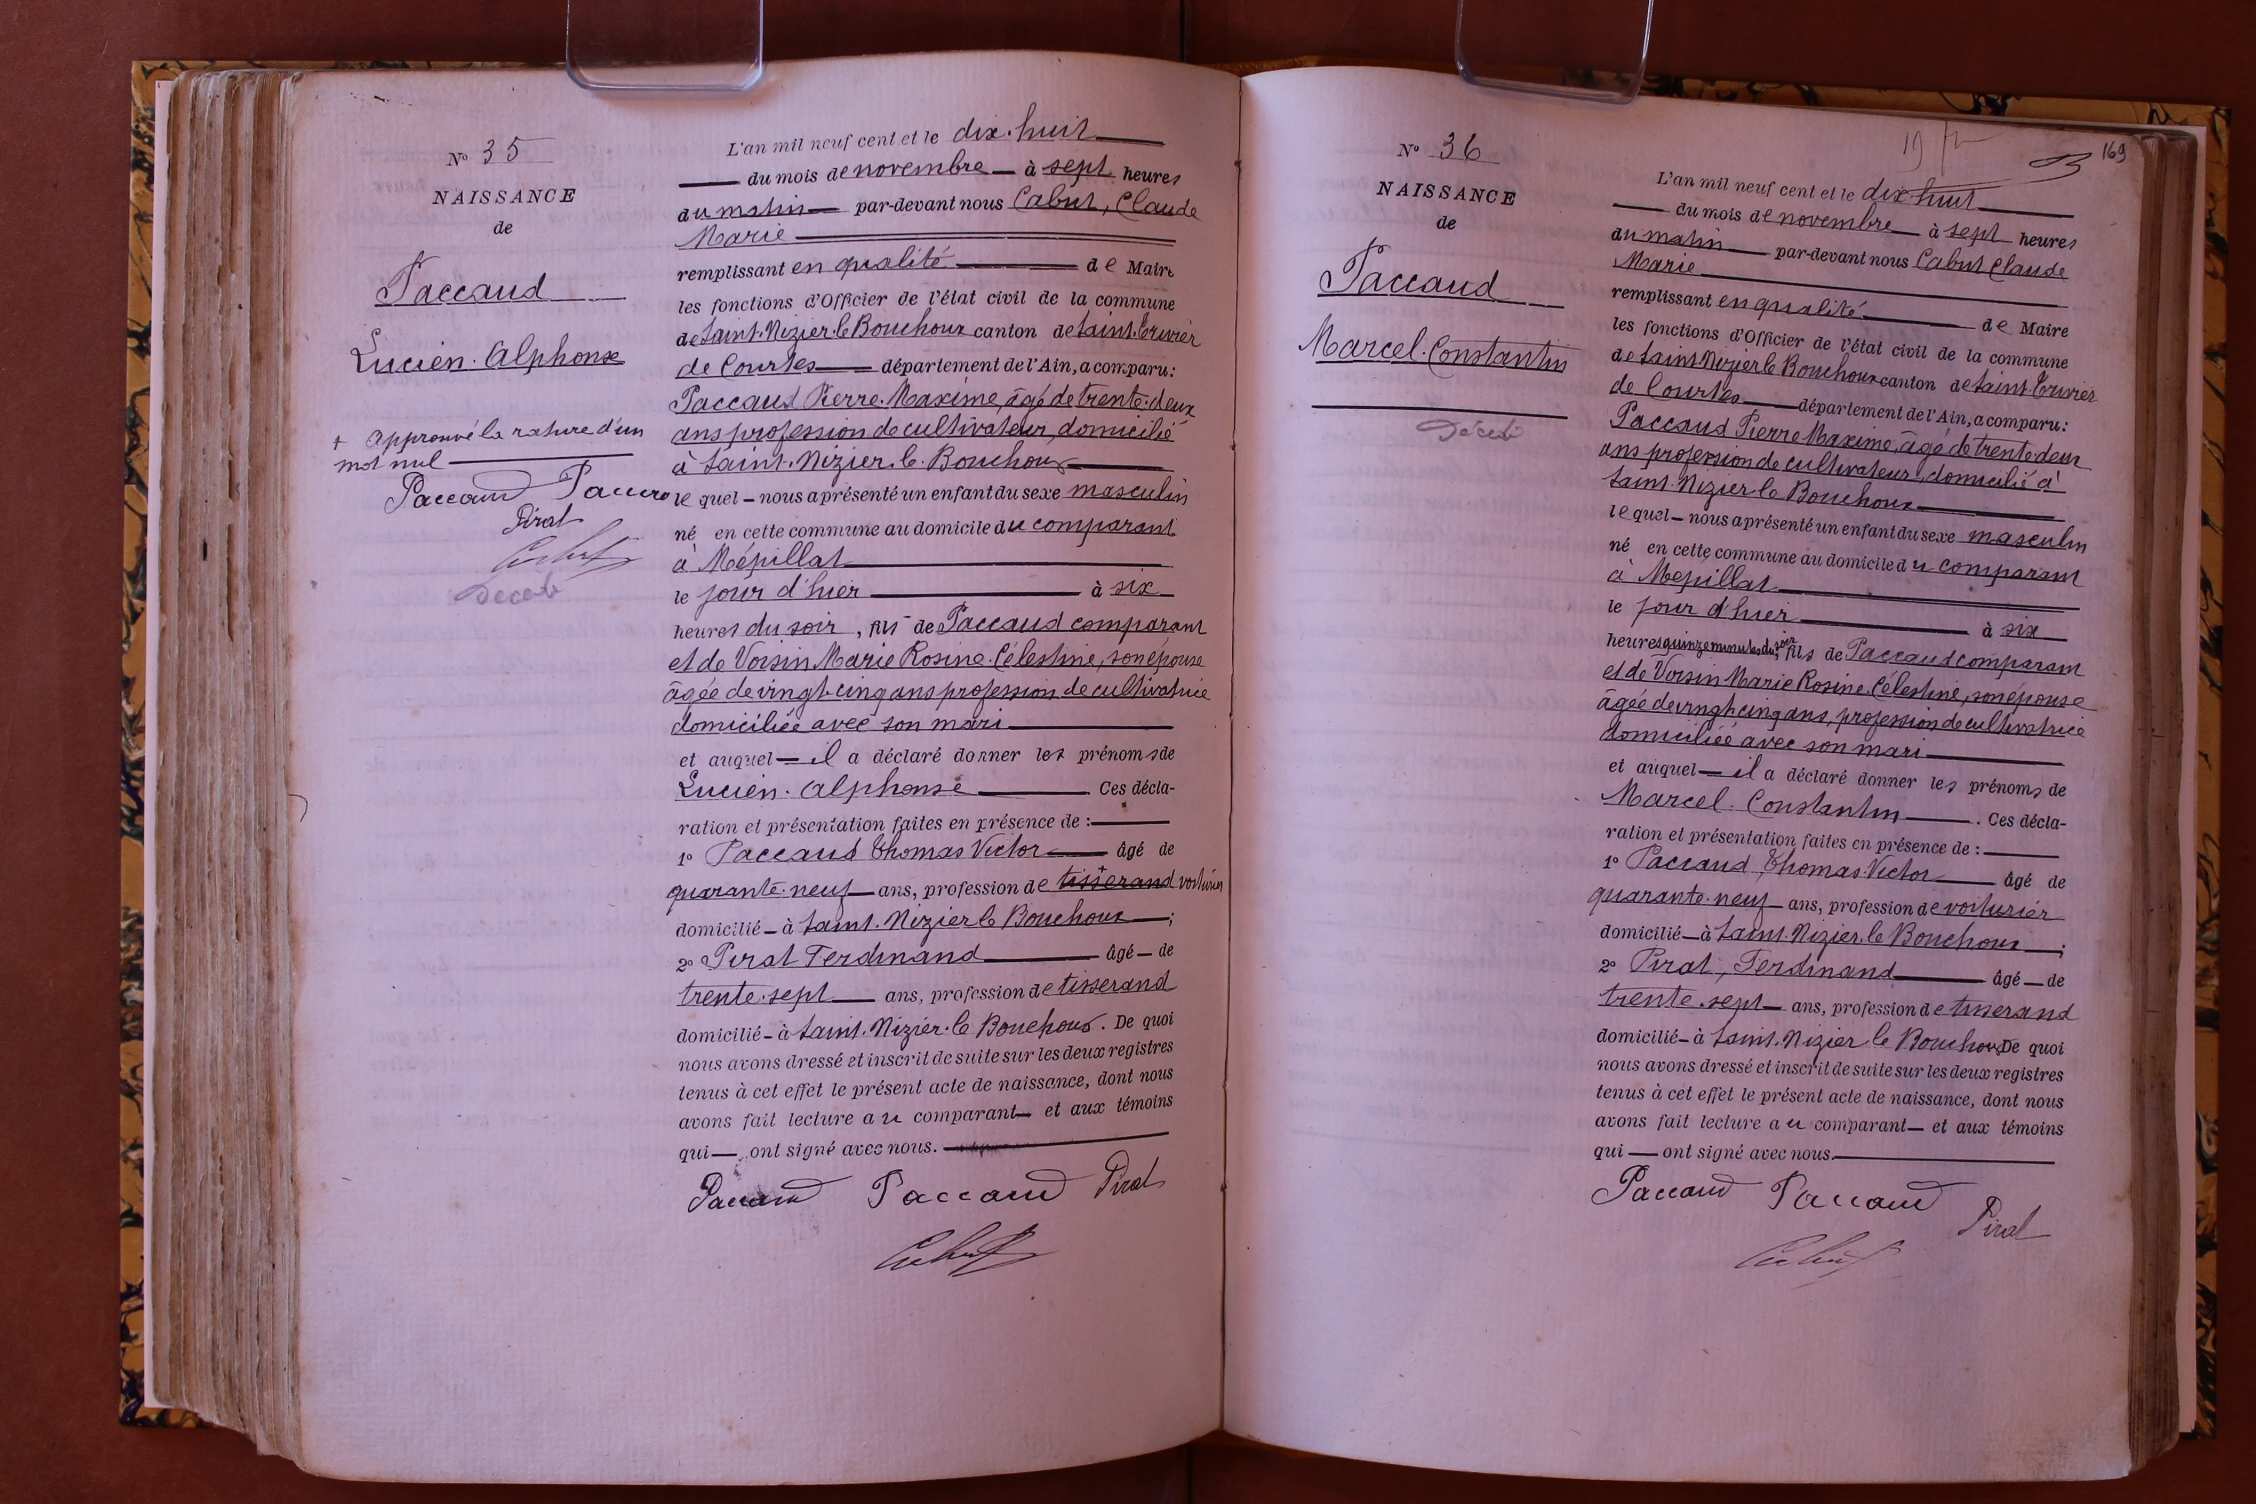 N° 35
NAISSANCE
de
Paccaud
Lucien. Alphonse
+ approuvé la rature d'un
mot nul
Paccaud Paccaud
Pirat
Cabut
Décédé
L'an mil neuf cent et le dix-huit
du mois de novembre à sept heures
du matin par-devant nous Cabut, Claude
Marie
remplissant en qualité de Maire
les fonctions d'Officier de l'état civil de la commune
de Saint-Nizier le Bouchoux canton de Saint-Trivier
de Courtes département de l'Ain, a comparu :
Paccaud Pierre-Maxime, âgé de trente-deux
ans profession de cultivateur, domicilié
à Saint-Nizier-le-Bouchoux
lequel nous a présenté un enfant du sexe masculin
né en cette commune au domicile du comparant
à Mépillat
le jour d'hier à six
heures du soir, fils de Paccaud comparant
et de Voisin Marie Rosine Célestine, son épouse
âgée de vingt-cinq ans profession de cultivatrice
domiciliée avec son mari
et auquel il a déclaré donner les prénoms de
Lucien. Alphonse Ces décla-
ration et présentation faites en présence de :
1° Paccaud Thomas Victor âgé de
quarante-neuf ans, profession de tisserand voiturier
domicilié à Saint-Nizier le Bouchoux ;
2° Pirat Ferdinand âgé de
trente-sept ans, profession de tisserand
domicilié à Saint-Nizier-le Bouchoux. De quoi
nous avons dressé et inscrit de suite sur les deux registres
tenus à cet effet le présent acte de naissance, dont nous
avons fait lecture au comparant et aux témoins
qui ont signé avec nous.
Paccaud Paccaud Pirat
Cabut
169
N° 36
NAISSANCE
de
Paccaud
Marcel. Constantin
Décédé
L'an mil neuf cent et le dix-huit
du mois de novembre à sept heures
du matin par-devant nous Cabut Claude
Marie
remplissant en qualité de Maire
les fonctions d'Officier de l'état civil de la commune
de Saint-Nizier le Bouchoux canton de Saint-Trivier
de Courtes département de l'Ain, a comparu :
Paccaud Pierre Maxime, âgé de trente deux
ans profession de cultivateur, domicilié à
Saint-Nizier le Bouchoux
lequel nous a présenté un enfant du sexe masculin
né en cette commune au domicile du comparant
à Mépillat
le jour d'hier à six
heures quinze minutes du soir, fils de Paccaud comparant
et de Voisin Marie Rosine Célestine, son épouse
âgée de vingt-cinq ans, profession de cultivatrice
domiciliée avec son mari
et auquel il a déclaré donner les prénoms de
Marcel. Constantin . Ces décla-
ration et présentation faites en présence de :
1° Paccaud, Thomas-Victor âgé de
quarante-neuf ans, profession de voiturier
domicilié à Saint-Nizier-le Bouchoux ;
2° Pirat, Ferdinand âgé de
trente-sept ans, profession de tisserand
domicilié à Saint-Nizier le Bouchoux De quoi
nous avons dressé et inscrit de suite sur les deux registres
tenus à cet effet le présent acte de naissance, dont nous
avons fait lecture au comparant et aux témoins
qui ont signé avec nous.
Paccaud Paccaud
Pirat
Cabut